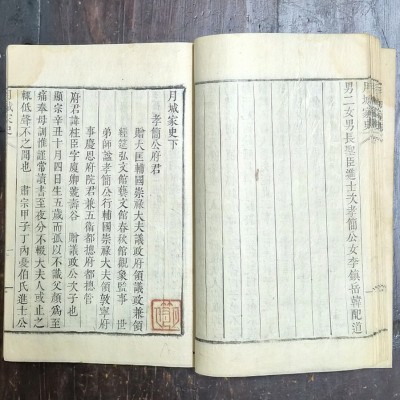 男二女男長聖臣進士次孝簡公女李鎭岳韓配道
月城家史下
孝簡公府君
贈大匡輔國崇祿大夫議政府領議政兼領
經筵弘文館藝文館春秋館觀象監事 世
弟師諡孝簡公行輔國崇祿大夫領敦寧府
事慶恩府院君兼五衛都摠府都摠管
府君諱柱臣字廈卿號壽谷 贈議政公次子也
顯宗辛丑十月四日生五歲而孤以不識父顏爲至
痛奉母訓惟謹常讀書至夜分不輟大夫人或止之
輒低聲不之間也 肅宗甲子丁內艱伯氏進士公
月城家史